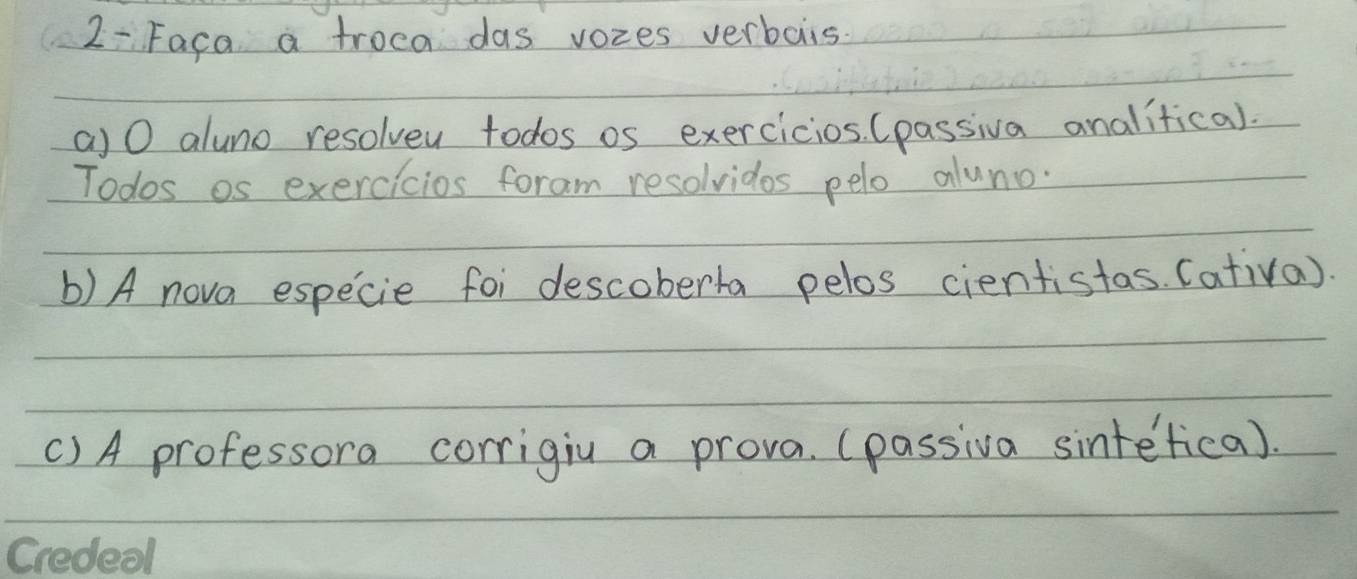 2-Faça a troca das vozes verbais.
a) O aluno resolveu todos os exercícios. (passiva analítica).
Todos os exercícios foram resolvidos pelo aluno.
b) A nova espécie foi descoberta pelos cientistas. (ativa).
c) A professora corrigiu a prova. (passiva sintética).
Credeal